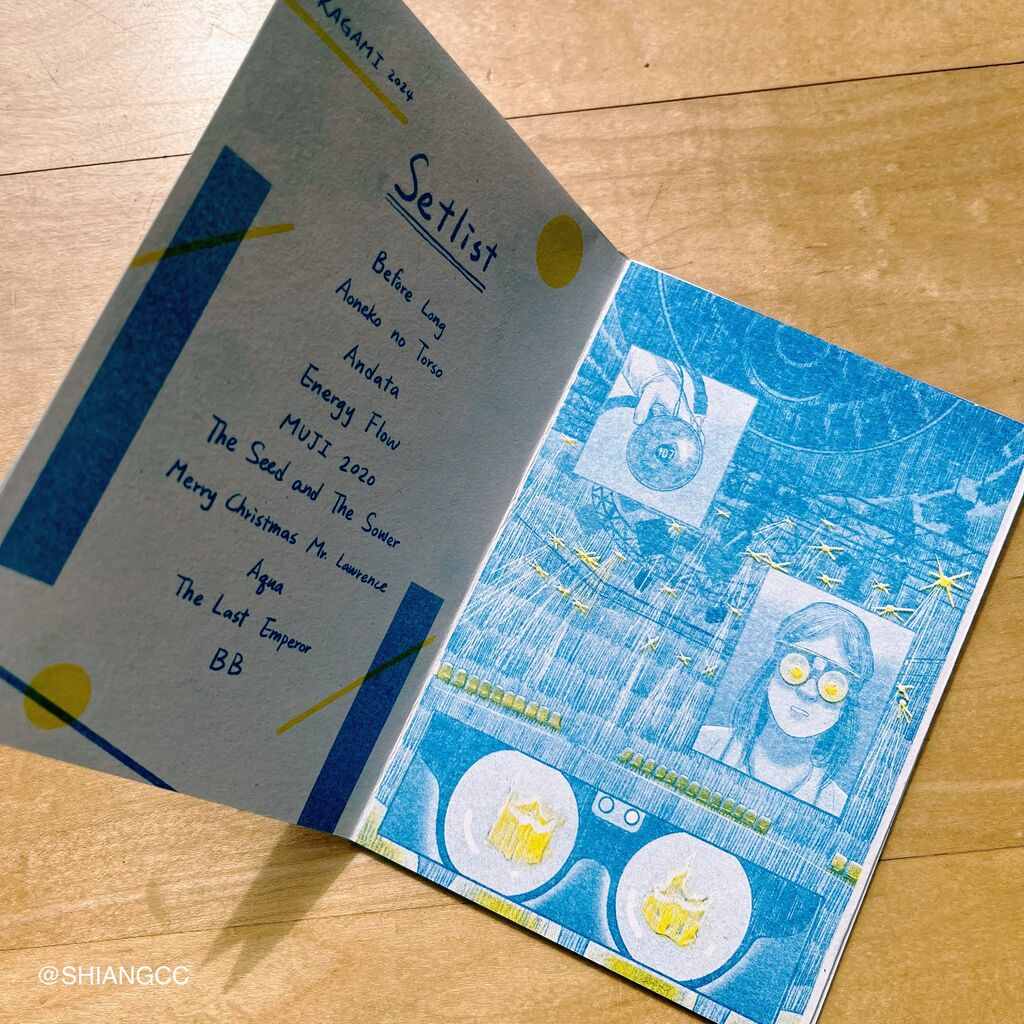 KAGAMI 2024
Setlist
Before Long
Aoneko no Torso
Andata
Energy Flow
MUJI 2020
The Seed and The Sower
Merry Christmas Mr. Lawrence
Aqua
The Last Emperor
BB
187
@SHIANGCC